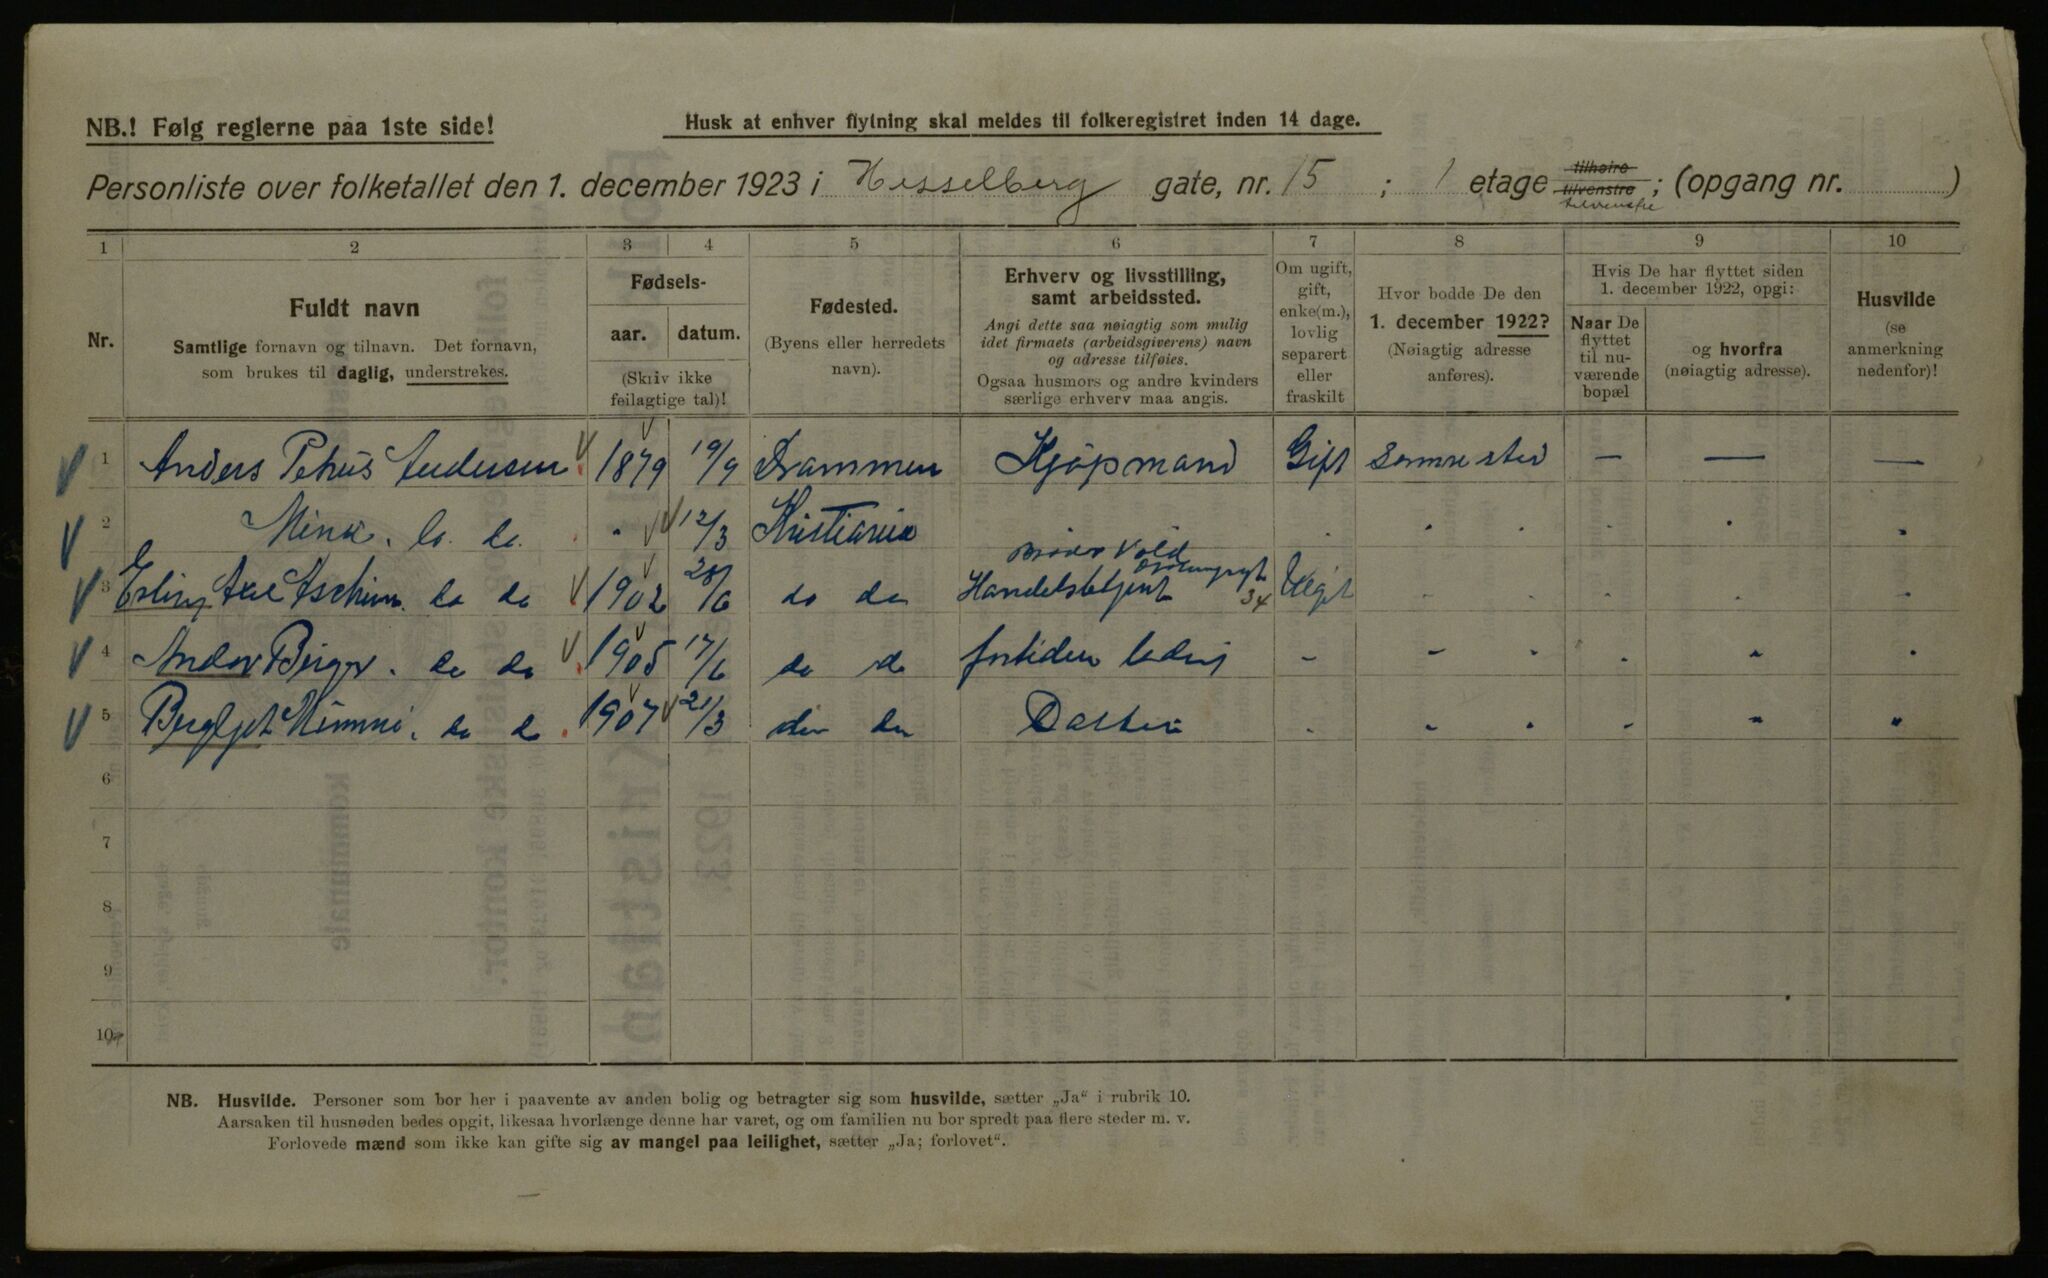 NB.! Følg reglerne paa 1ste side!
Husk at enhver flytning skal meldes til folkeregistret inden 14 dage.
Personliste over folketallet den 1. december 1923 i Hesselberg gate, nr. 15 ; 1 etage tilhøire tilvenstre ; (opgang nr. )
tilvenstre
1 2 3 4 5 6 7 8 9 10
Nr.
Fuldt navn
Samtlige fornavn og tilnavn. Det fornavn,
som brukes til daglig, understrekes.
Fødsels-
aar. datum.
(Skriv ikke
feilagtige tal)!
Fødested.
(Byens eller herredets
navn).
Erhverv og livsstilling,
samt arbeidssted.
Angi dette saa nøiagtig som mulig
idet firmaets (arbeidsgiverens) navn
og adresse tilføies.
Ogsaa husmors og andre kvinders
særlige erhverv maa angis.
Om ugift,
gift,
enke(m.),
lovlig
separert
eller
fraskilt
Hvor bodde De den
1. december 1922?
(Nøiagtig adresse
anføres).
Hvis De har flyttet siden
1. december 1922, opgi:
Naar De
flyttet
til nu-
værende
bopæl
og hvorfra
(nøiagtig adresse).
Husvilde
(se
anmerkning
nedenfor)!
1 Anders Petrus Andersen 1879 19/9 Drammen Kjöpmand Gift Samme sted — — —
2 Mina do. do. " 12/3 Kristiania
3 Erling Axel do do 1902 28/6 do do Handelsbetjent 34 Ugift
4 Andor Birger. do do 1905 17/6 do do fortiden ledig
5 Bergljot Mimmi. do do 1907 21/3 do do Datter
6
7
8
9
10
NB. Husvilde. Personer som bor her i paavente av anden bolig og betragter sig som husvilde, sætter „Ja“ i rubrik 10.
Aarsaken til husnøden bedes opgit, likesaa hvorlænge denne har varet, og om familien nu bor spredt paa flere steder m. v.
Forlovede mænd som ikke kan gifte sig av mangel paa leilighet, sætter „Ja; forlovet“.